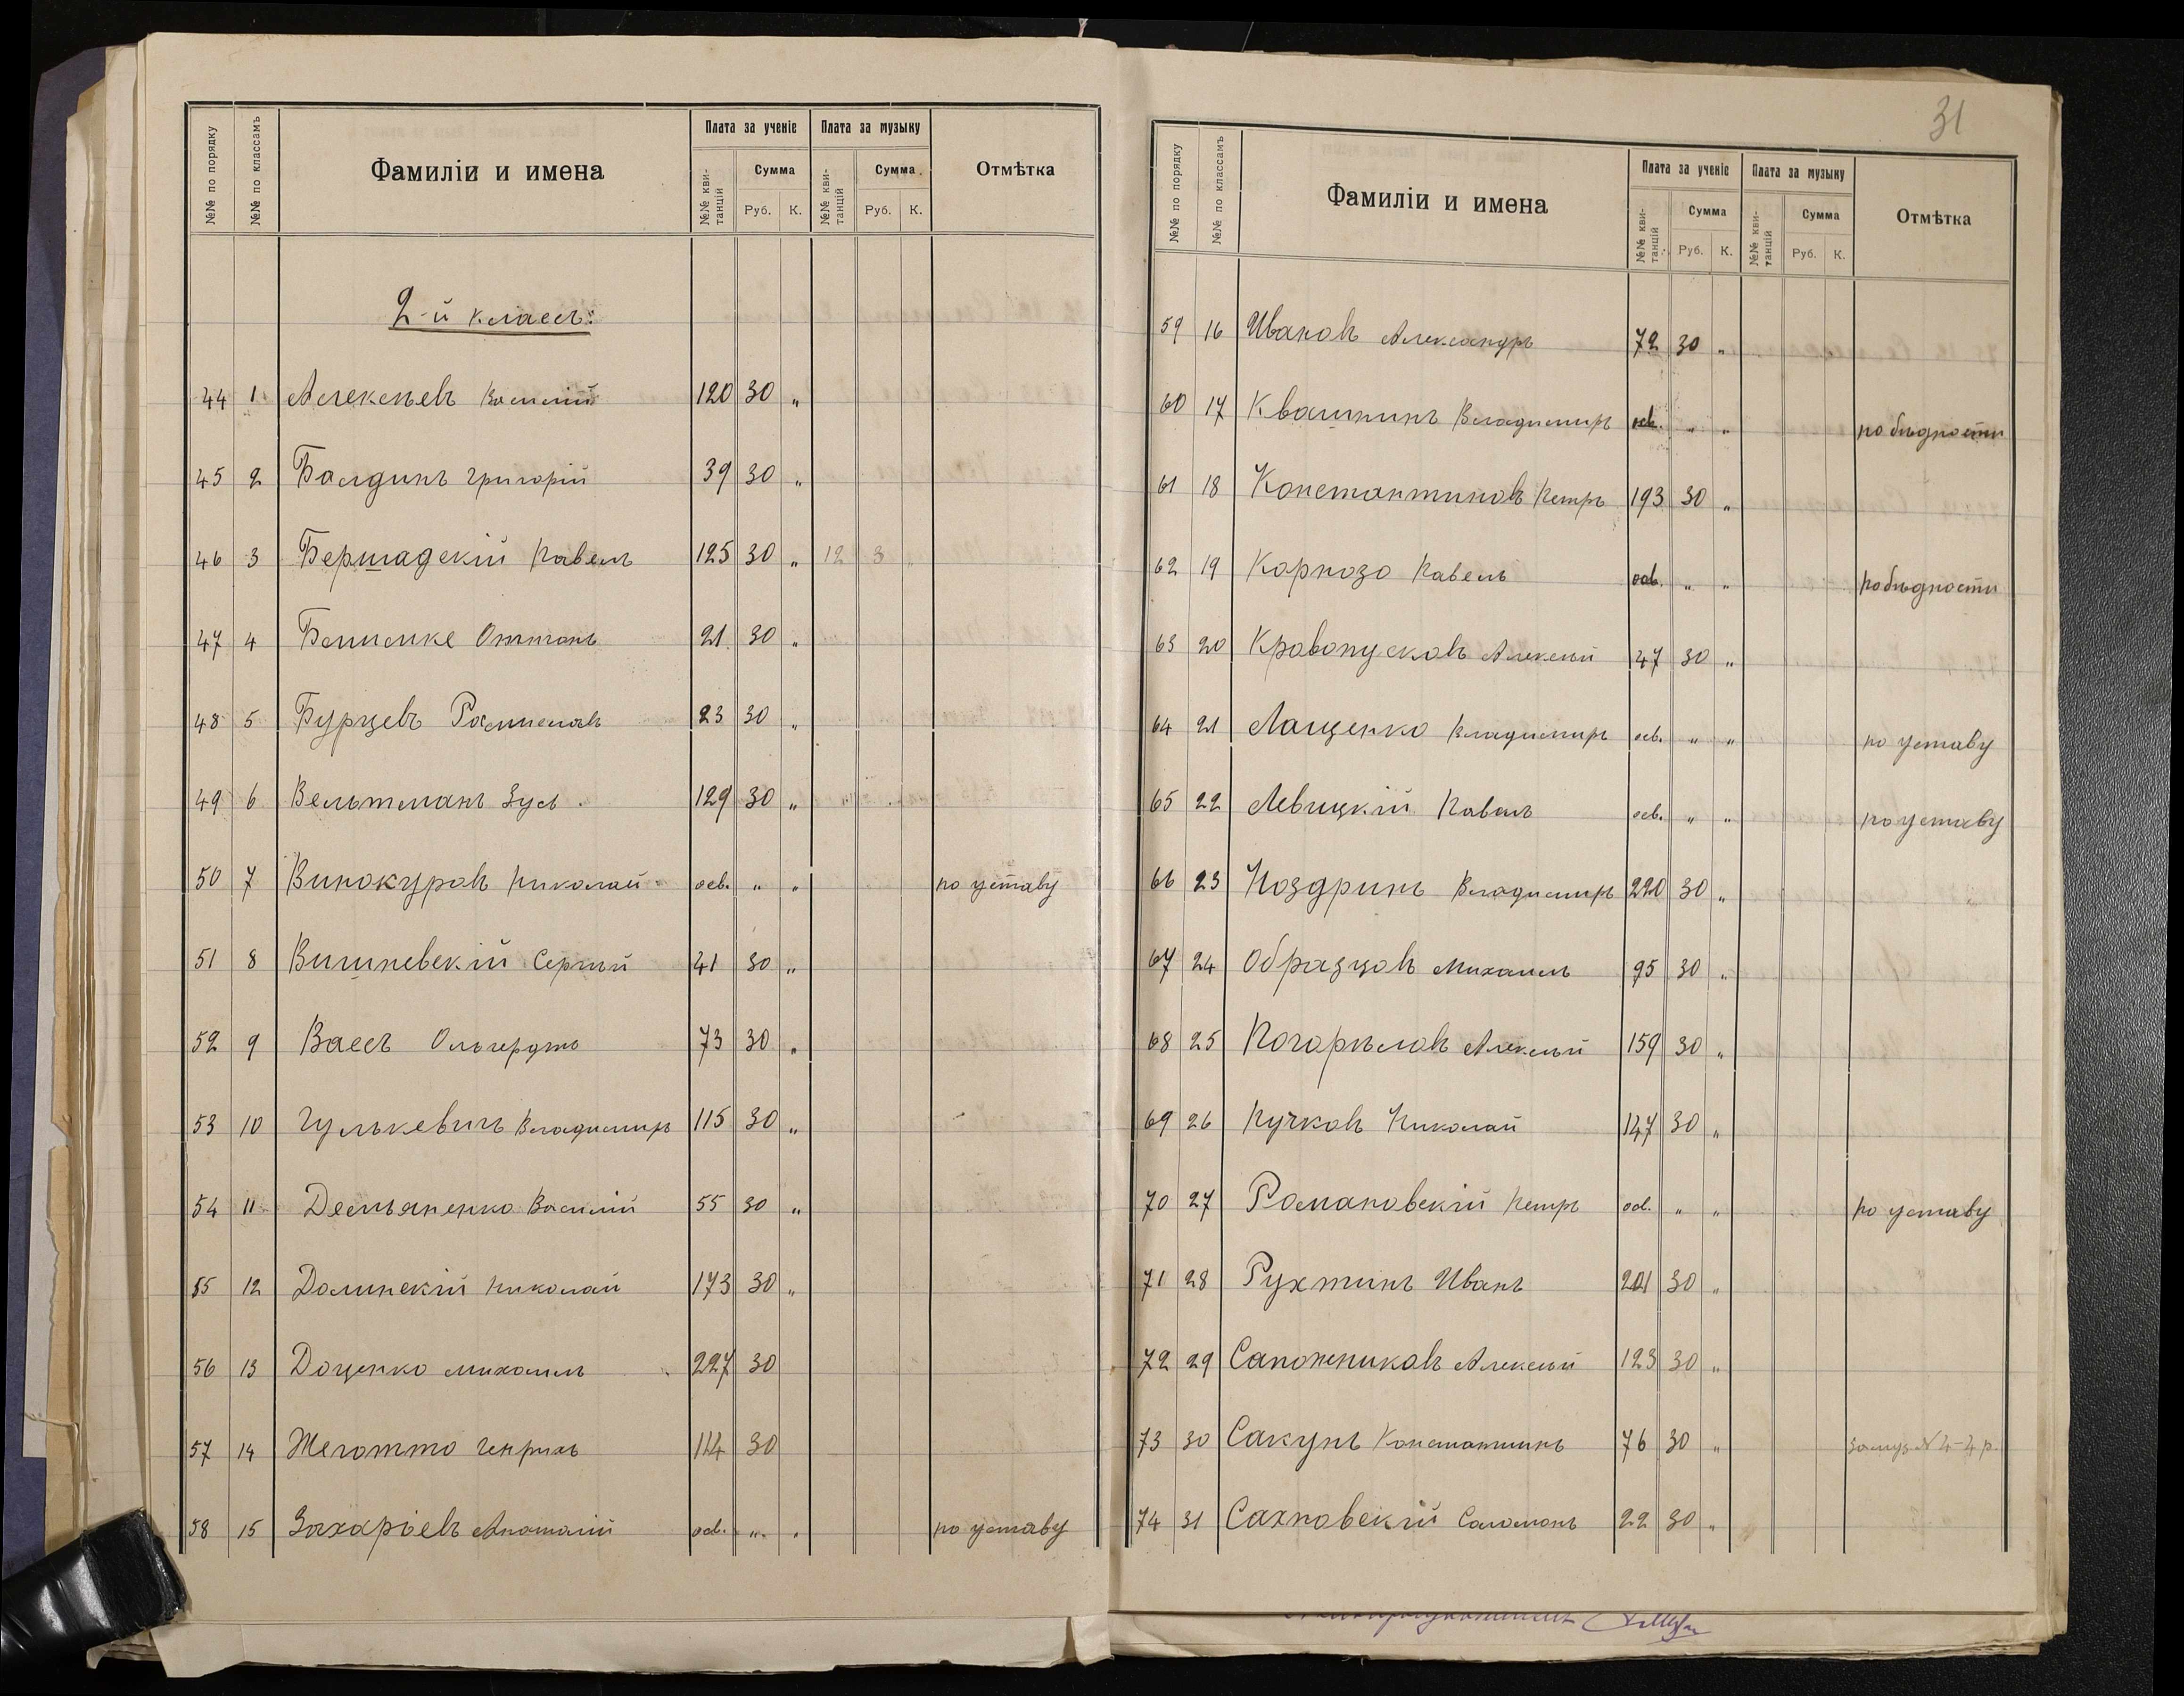 №№ по порядку №№ по классамъ Фамиліи и имена Плата за ученіе Плата за музыку Отмѣтка
№№ кви-танцій Сумма №№ кви-танцій Сумма
Руб. К. Руб. К.
2-й классъ:
44 1 Алексѣевъ Василій 120 30 „
45 2 Балдинъ Григорій 39 30 „
46 3 Бершадскій Павелъ 125 30 „ 12 3 „
47 4 21 30 „
48 5 Бурцевъ Ростиславъ 23 30 „
49 6 Вельтманъ Зусь 129 30 „
50 7 Винокуровъ Николай осв. „ „ по уставу
51 8 Вишневскій Сергѣй 41 30 „
52 9 Вассъ Ольгердъ 73 30 „
53 10 Гулькевичъ Владимиръ 115 30 „
54 11 Демьяненко Василій 55 30 „
55 12 Долинскій Николай 173 30 „
56 13 Доценко Михаилъ 227 30
57 14 Жеготто Генрихъ 114 30
58 15 Захаріевъ Анатолій осв. „ „ по уставу
31
№№ по порядку №№ по классамъ Фамиліи и имена Плата за ученіе Плата за музыку Отмѣтка
№№ кви-танцій Сумма №№ кви-танцій Сумма
Руб. К. Руб. К.
59 16 Ивановъ Александръ 72 30 „
60 17 Квашнинъ Владимиръ осв. „ „ по бѣдности
61 18 Константиновъ Петръ 193 30 „
62 19 Корнозо Павелъ осв. „ „ по бѣдности
63 20 Кровопусковъ Алексѣй 47 30 „
64 21 Лащенко Владимиръ осв. „ „ по уставу
65 22 Левицкій Павелъ осв. „ „ по уставу
66 23 Ноздринъ Владимиръ 220 30 „
67 24 Образцовъ Михаилъ 95 30 „
68 25 Погорѣловъ Алексѣй 159 30 „
69 26 Пучковъ Николай 147 30 „
70 27 Романовскій Петръ осв. „ „ по уставу
71 28 Рухтинъ Иванъ 201 30 „
72 29 Сапожниковъ Алексѣй 123 30 „
73 30 Сакунъ Константинъ 76 30 „ за муз. N 4-4 р.
74 31 Сахновскій Соломонъ 22 30 „